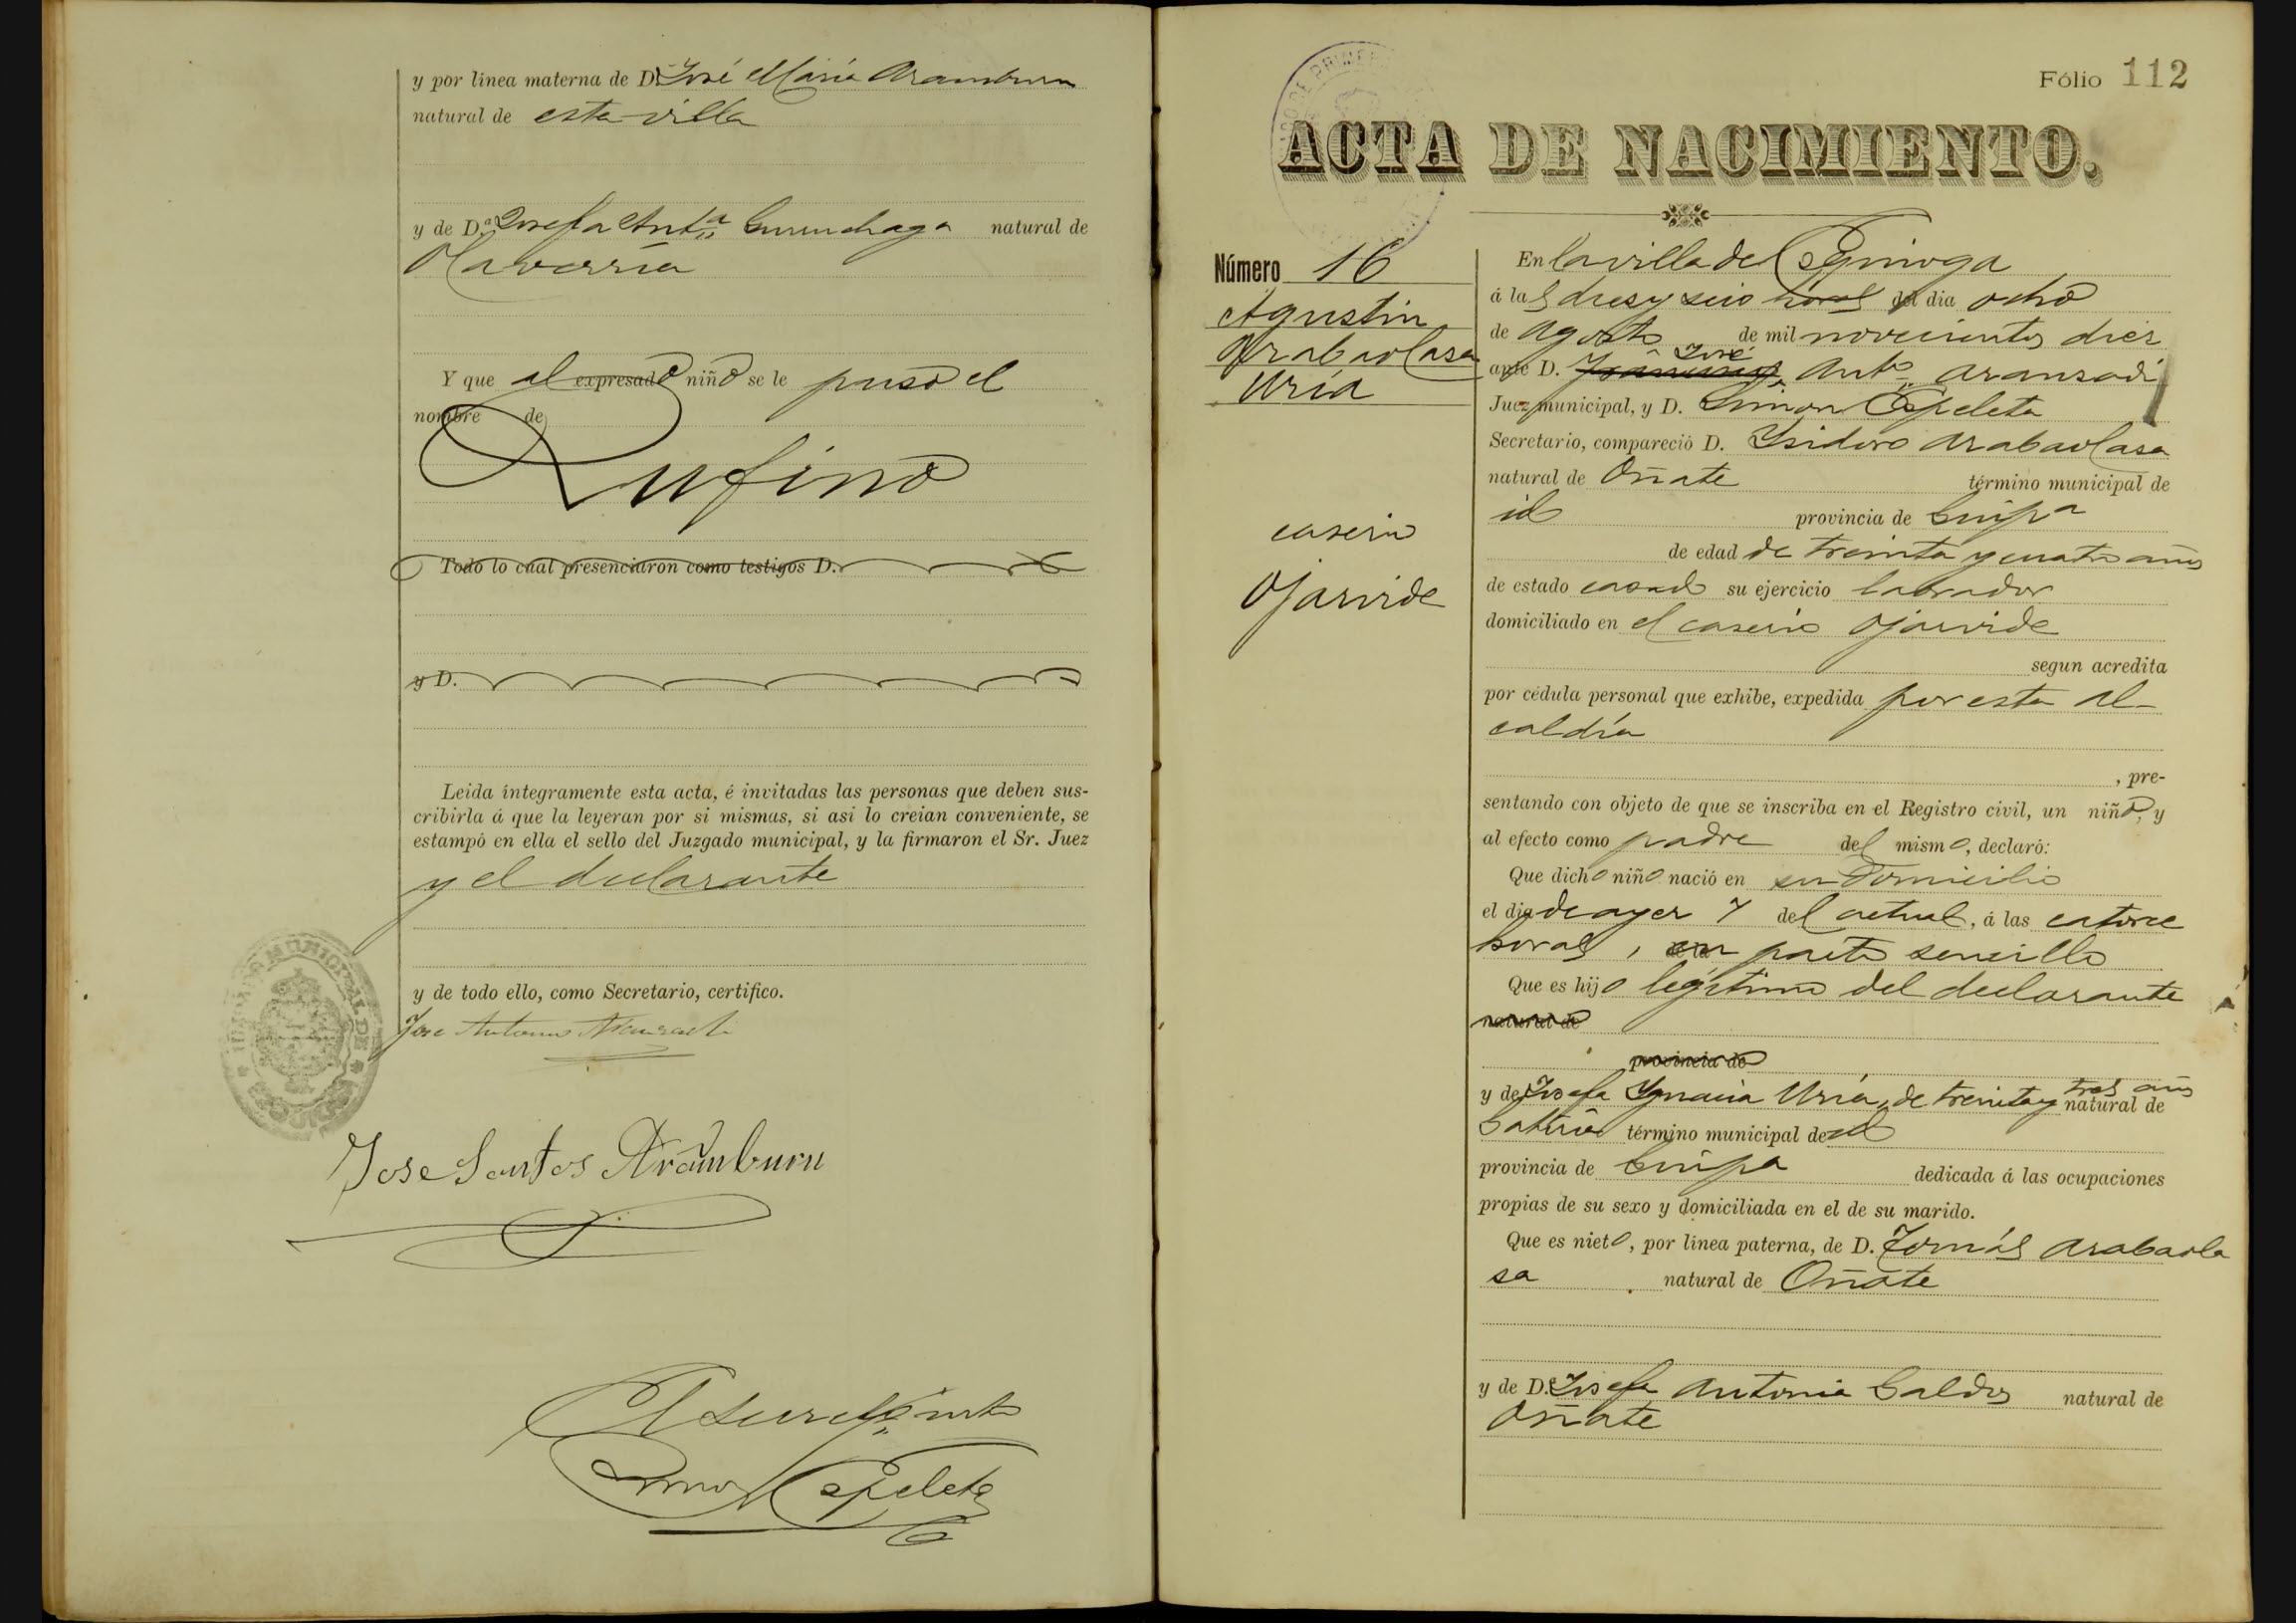 y por línea materna de D. José María Aramburu
natural de esta villa
y de D.ª Josefa Ant.ª Gurruchaga natural de
Olaverría
Y que al expresado niño se le puso el
nombre de
Rufino
Todo lo cual presenciaron como testigos D.
y D.
Leida íntegramente esta acta, é invitadas las personas que deben sus-
cribirla á que la leyeran por si mismas, si asi lo creian conveniente, se
estampó en ella el sello del Juzgado municipal, y la firmaron el Sr. Juez
y el declarante
y de todo ello, como Secretario, certifico.
Jose Antonio Aranzadi
Jose Santos Aramburu
El Secretario
Simon Ezpeleta
Fólio 112
ACTA DE NACIMIENTO.
Número 16
Agustin
Arabaolasa
Uría
caserio
Ojarvide
En la villa de Ezquioga
á las dies y seis horas del dia ocho
de agosto de mil novecientos diez
José
ante D. Anto Aranzadi
Juez municipal, y D. Simon Ezpeleta
Secretario, compareció D. Ysidoro Arabaolasa
natural de Oñate término municipal de
id provincia de Guipa
de edad de treinta y cuatro años
de estado casado su ejercicio labrador
domiciliado en el caserio Ojarvide
segun acredita
por cédula personal que exhibe, expedida por esta Al-
caldía
, pre-
sentando con objeto de que se inscriba en el Registro civil, un niño, y
al efecto como padre del mismo, declaró:
Que dicho niño nació en su domicilio
el dia de ayer 7 del actual, á las catorce
horas, en parto sencillo
Que es hijo legítimo del declarante
natural de
provincia de
y de Josefa Ygnacia Uría, de treinta y tres años natural de
Gaviria término municipal de id
provincia de Guipa dedicada á las ocupaciones
propias de su sexo y domiciliada en el de su marido.
Que es nieto, por línea paterna, de D. Tomás Arabaola
sa natural de Oñate
y de D.ª Josefa Antonia Galdos natural de
Oñate